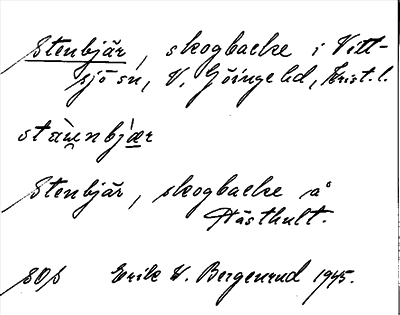 Stenbjär, skogbacke i Vitt-
sjö sn, V. Göinge hd, Krist. l.
stàu̯nbjæ̀r
Stenbjär, skogbacke å
Hästhult.
Erik W. Bergenrud 1945.